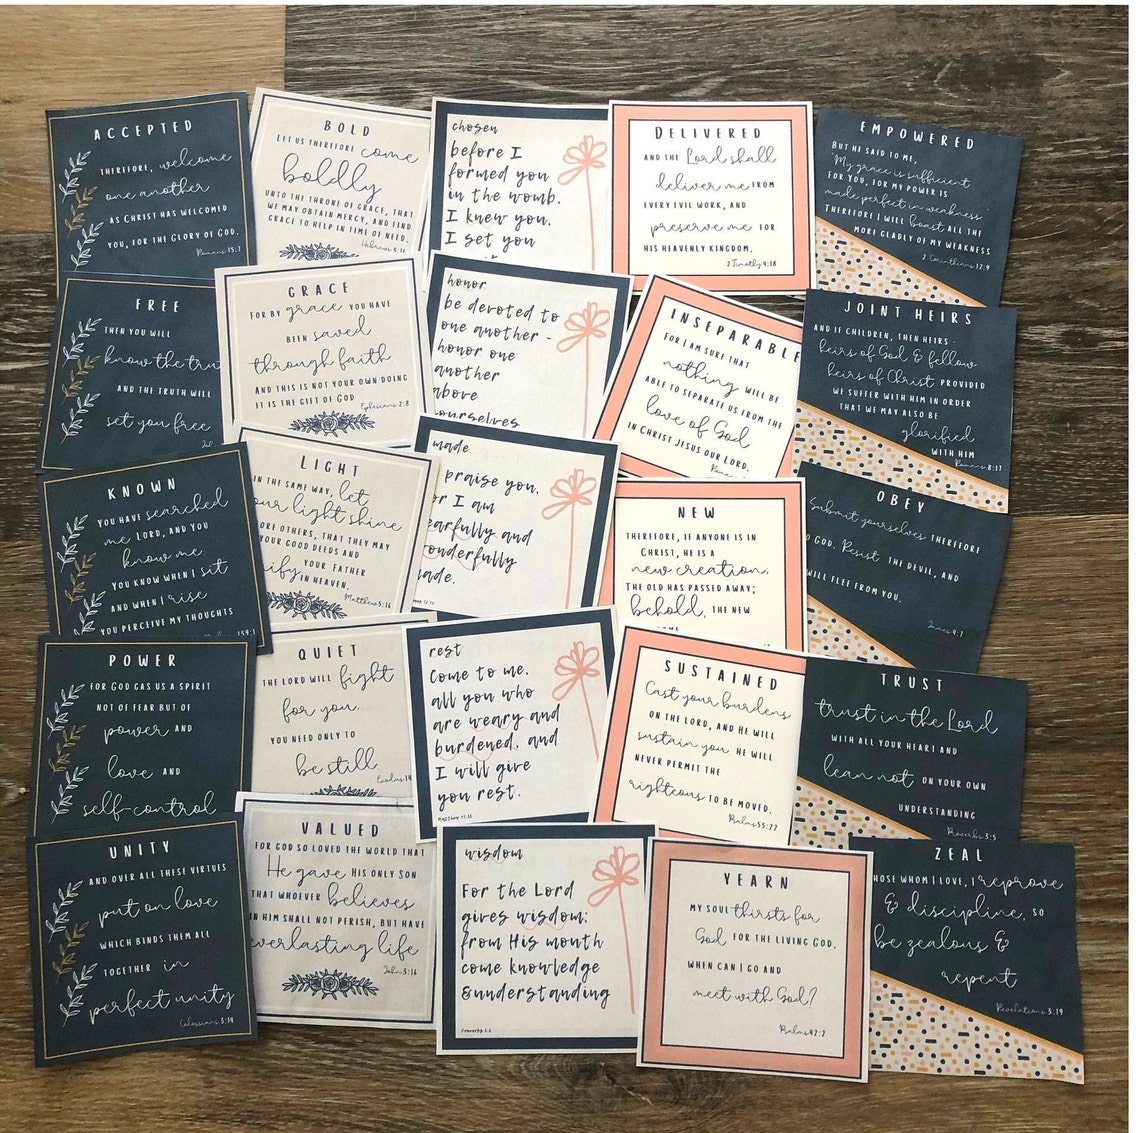 ACCEPTED
THEREFORE, welcome
one another
AS CHRIST HAS WELCOMED
YOU, FOR THE GLORY OF GOD.
Romans 15:7
BOLD
LET US THEREFORE come
boldly
UNTO THE THRONE OF GRACE, THAT
WE MAY OBTAIN MERCY, AND FIND
GRACE TO HELP IN TIME OF NEED.
Hebrews 4:16
chosen
before I
formed you
in the womb,
I knew you,
I set you
DELIVERED
AND THE Lord shall
deliver me FROM
EVERY EVIL WORK, AND
preserve me FOR
HIS HEAVENLY KINGDOM.
2 Timothy 4:18
EMPOWERED
BUT HE SAID TO ME,
"My grace is sufficient
FOR YOU, FOR MY POWER IS
made perfect in weakness
THEREFORE I WILL boast ALL THE
MORE GLADLY OF MY WEAKNESS
2 Corinthians 12:9
FREE
THEN YOU WILL
know the tru
AND THE TRUTH WILL
set you free
Joh
GRACE
FOR BY grace YOU HAVE
BEEN saved
through faith
AND THIS IS NOT YOUR OWN DOING
IT IS THE GIFT OF GOD
Ephesians 2:8
honor
be devoted to
one another -
honor one
another
above
yourselves
INSEPARABLE
FOR I AM SURE THAT
nothing WILL BE
ABLE TO SEPARATE US FROM THE
love of God
IN CHRIST JESUS OUR LORD.
Roma
JOINT HEIRS
AND IF CHILDREN, THEN HEIRS -
heirs of God & fellow
heirs of Christ PROVIDED
WE SUFFER WITH HIM IN ORDER
THAT WE MAY ALSO BE
glorified
WITH HIM
Romans 8:17
KNOWN
YOU HAVE searched
me LORD, AND YOU
know me
YOU KNOW WHEN I sit
AND WHEN I rise
YOU PERCEIVE MY THOUGHTS
159:1
LIGHT
IN THE SAME WAY, let
our light shine
ORE OTHERS, THAT THEY MAY
YOUR GOOD DEEDS AND
ify YOUR FATHER
IN HEAVEN.
Matthew 5:16
made
praise you,
or I am
earfully and
onderfully
ade.
NEW
THEREFORE, IF ANYONE IS IN
CHRIST, HE IS A
new creation;
THE OLD HAS PASSED AWAY;
behold, THE NEW
OBEY
Submit yourselves THEREFORE
O GOD. Resist THE DEVIL, AND
WILL FLEE FROM YOU.
James 4:7
POWER
FOR GOD GAS US A SPIRIT
NOT OF FEAR BUT OF
power AND
love AND
self-control
QUIET
THE LORD WILL fight
for you,
YOU NEED ONLY TO
be still
Exodus 14
rest
Come to me,
all you who
are weary and
burdened, and
I will give
you rest.
Matthew 11:28
SUSTAINED
Cast your burdens
ON THE LORD, AND HE WILL
sustain you HE WILL
NEVER PERMIT THE
righteous TO BE MOVED.
Psalm 55:22
TRUST
trust in the Lord
WITH ALL YOUR HEART AND
lean not ON YOUR OWN
UNDERSTANDING
Proverbs 3:5
UNITY
AND OVER ALL THESE VIRTUES
put on love
WHICH BINDS THEM ALL
TOGETHER in
perfect unity
Colossians 3:14
VALUED
FOR GOD SO LOVED THE WORLD THAT
He gave HIS ONLY SON
THAT WHOEVER believes
IN HIM SHALL NOT PERISH, BUT HAVE
everlasting life
John 3:16
wisdom
For the Lord
gives wisdom;
from His mouth
come knowledge
&understanding
Proverbs 2:6
YEARN
MY SOUL thirsts for
God FOR THE LIVING GOD.
WHEN CAN I GO AND
meet with God?
Psalm 42:2
ZEAL
HOSE WHOM I LOVE, I reprove
& discipline, SO
be zealous &
repent
Revelations 3:19